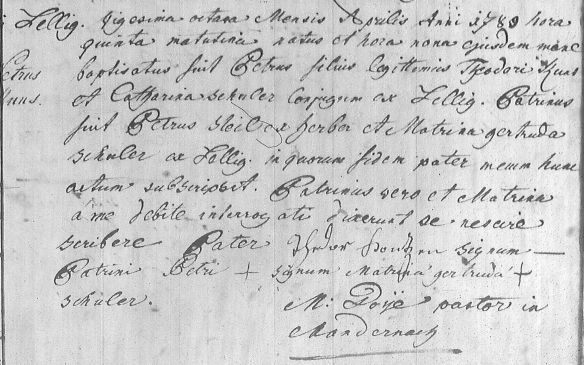 Lellig. Vigesima octava Mensis Aprilis Anni 1789 hora
quinta matutina natus et hora nona ejusdem mane
Petrus baptisatus fuit Petrus filius legittimus Theodori
et Catharina schuler Conjugum ex Lellig. Patrinus
fuit Petrus ex herber et Matrina gertruda
schuler ex Lellig. in quorum fidem pater mecum hunc
actum subscripsit. Patrinus vero et Matrina
a me debite interrogati dixerunt se nescire
scribere Pater signum
Patrini Petri + signum Matrina gertruda +
schuler.
M: pastor in
Mandernach